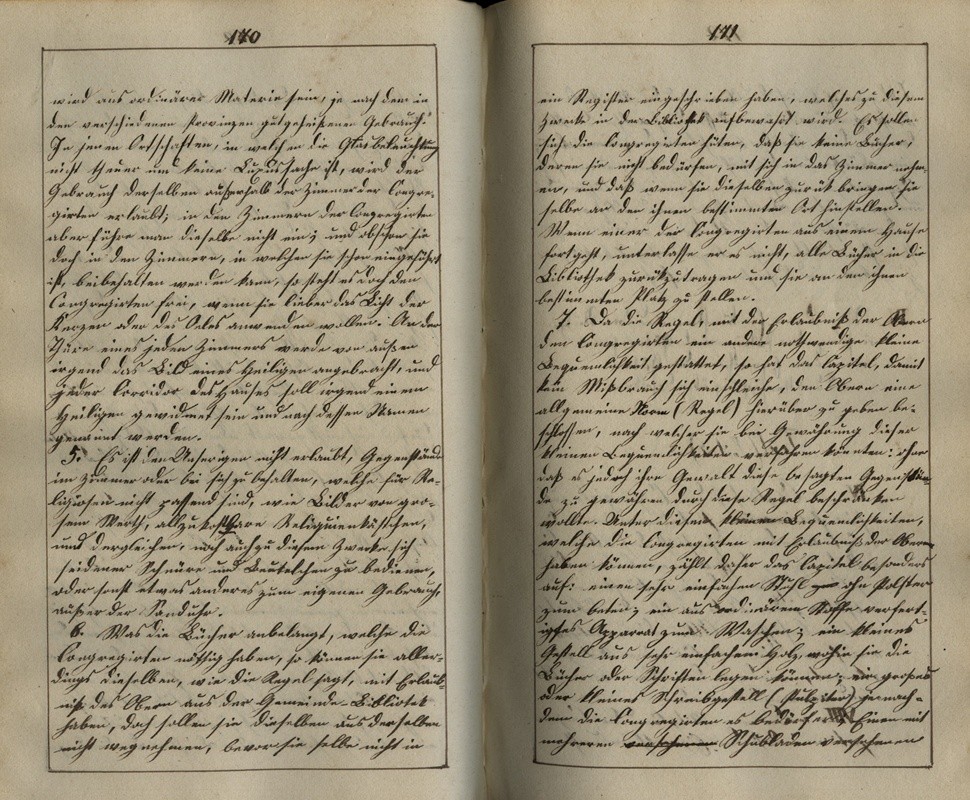 170
wird aus ordinärer Materie sein, je nach dem in
den verschiedenen Provinzen gutgeheißenen Gebrauch.
In jenen Ortschaften, in welchen die Gasbeleuchtung
nicht theuer und keine Luxussache ist, wird der
Gebrauch derselben außerhalb der Zimmer der Congre-
girten erlaubt; in den Zimmern der Congregirten
aber führe man dieselbe nicht ein; und obschon sie
doch in den Zimmern, in welchen sie schon eingeführt
ist, beibehalten werden kann, so steht es doch den
Congregirten frei, wenn sie lieber das Licht der
Kerzen oder des Oeles anwenden wollen. An der
Thüre eines jeden Zimmers werde von außen
irgend das Bild eines Heiligen angebracht, und
jeder Corridor des Hauses soll irgend einem
Heiligen gewidmet sein und nach dessen Namen
genannt werden.
5. Es ist den Unserigen nicht erlaubt, Gegenstände
im Zimmer oder bei sich zu behalten, welche für Re-
ligiosen nicht passend sind, wie Bilder von gro-
ßem Werth, allzu kostbare Reliquienkästchen,
und dergleichen, noch auch zu diesem Zwecke sich
seidener Schnüre und Beutelchen zu bedienen,
oder sonst etwas anderes zum eigenen Gebrauch,
außer der Sanduhr.
6. Was die Bücher anbelangt, welche die
Congregirten nöthig haben, so können sie aller-
dings dieselben, wie die Regel sagt, mit Erlaub-
niß des Obern aus der Gemeinde-Bibliothek
haben, doch sollen sie dieselben aus derselben
nicht wegnehmen, bevor sie selbe nicht in
171
ein Register eingeschrieben haben, welches zu diesem
Zwecke in der Bibliothek aufbewahrt wird. Es sollen
sich die Congregirten hüten, daß sie keine Bücher,
deren sie nicht bedürfen, mit sich in das Zimmer nehm-
en, und daß wenn sie dieselben zurück bringen sie
selbe an den ihnen bestimmten Ort hinstellen.
Wenn einer der Congregirten aus einem Hause
fortgeht, unterlasse er es nicht, alle Bücher in die
Bibliothek zurückzutragen und sie an den ihnen
bestimmten Platz zu stellen.
7. Da die Regel, mit der Erlaubniß der Obern
den Congregirten ein andere nothwendige kleine
Bequemlichkeit gestattet, so hat das Capitel, damit
kein Mißbrauch sich einschleiche, den Obern eine
allgemeine Norm (Regel) hierüber zu geben be-
schlossen, nach welcher sie bei Gewährung dieser
kleinen Bequemlichkeiten verfahren könnten: ohne
daß es jedoch ihre Gewalt diese besagten Gegenstän-
de zu gewähren durch diese Regel beschränken
wollte. Unter diesen kleinen Bequemlichkeiten,
welche die Congregirten mit Erlaubniß der Obern
haben können, zählt daher das Capitel besonders
auf: einen sehr einfachen Stuhl ohn Polster
zum beten; ein aus ordinärem Stoffe verfert-
igtes Apparat zum Waschen; ein kleines
Gestell aus sehr einfachem Holz, wohin sie die
Bücher oder Schriften legen können; ein großes
oder kleines Schreibgestell (Pulpiter) jenach-
dem die Congregirten es bedürfen. Einen mit
mehreren Schubladen versehenen